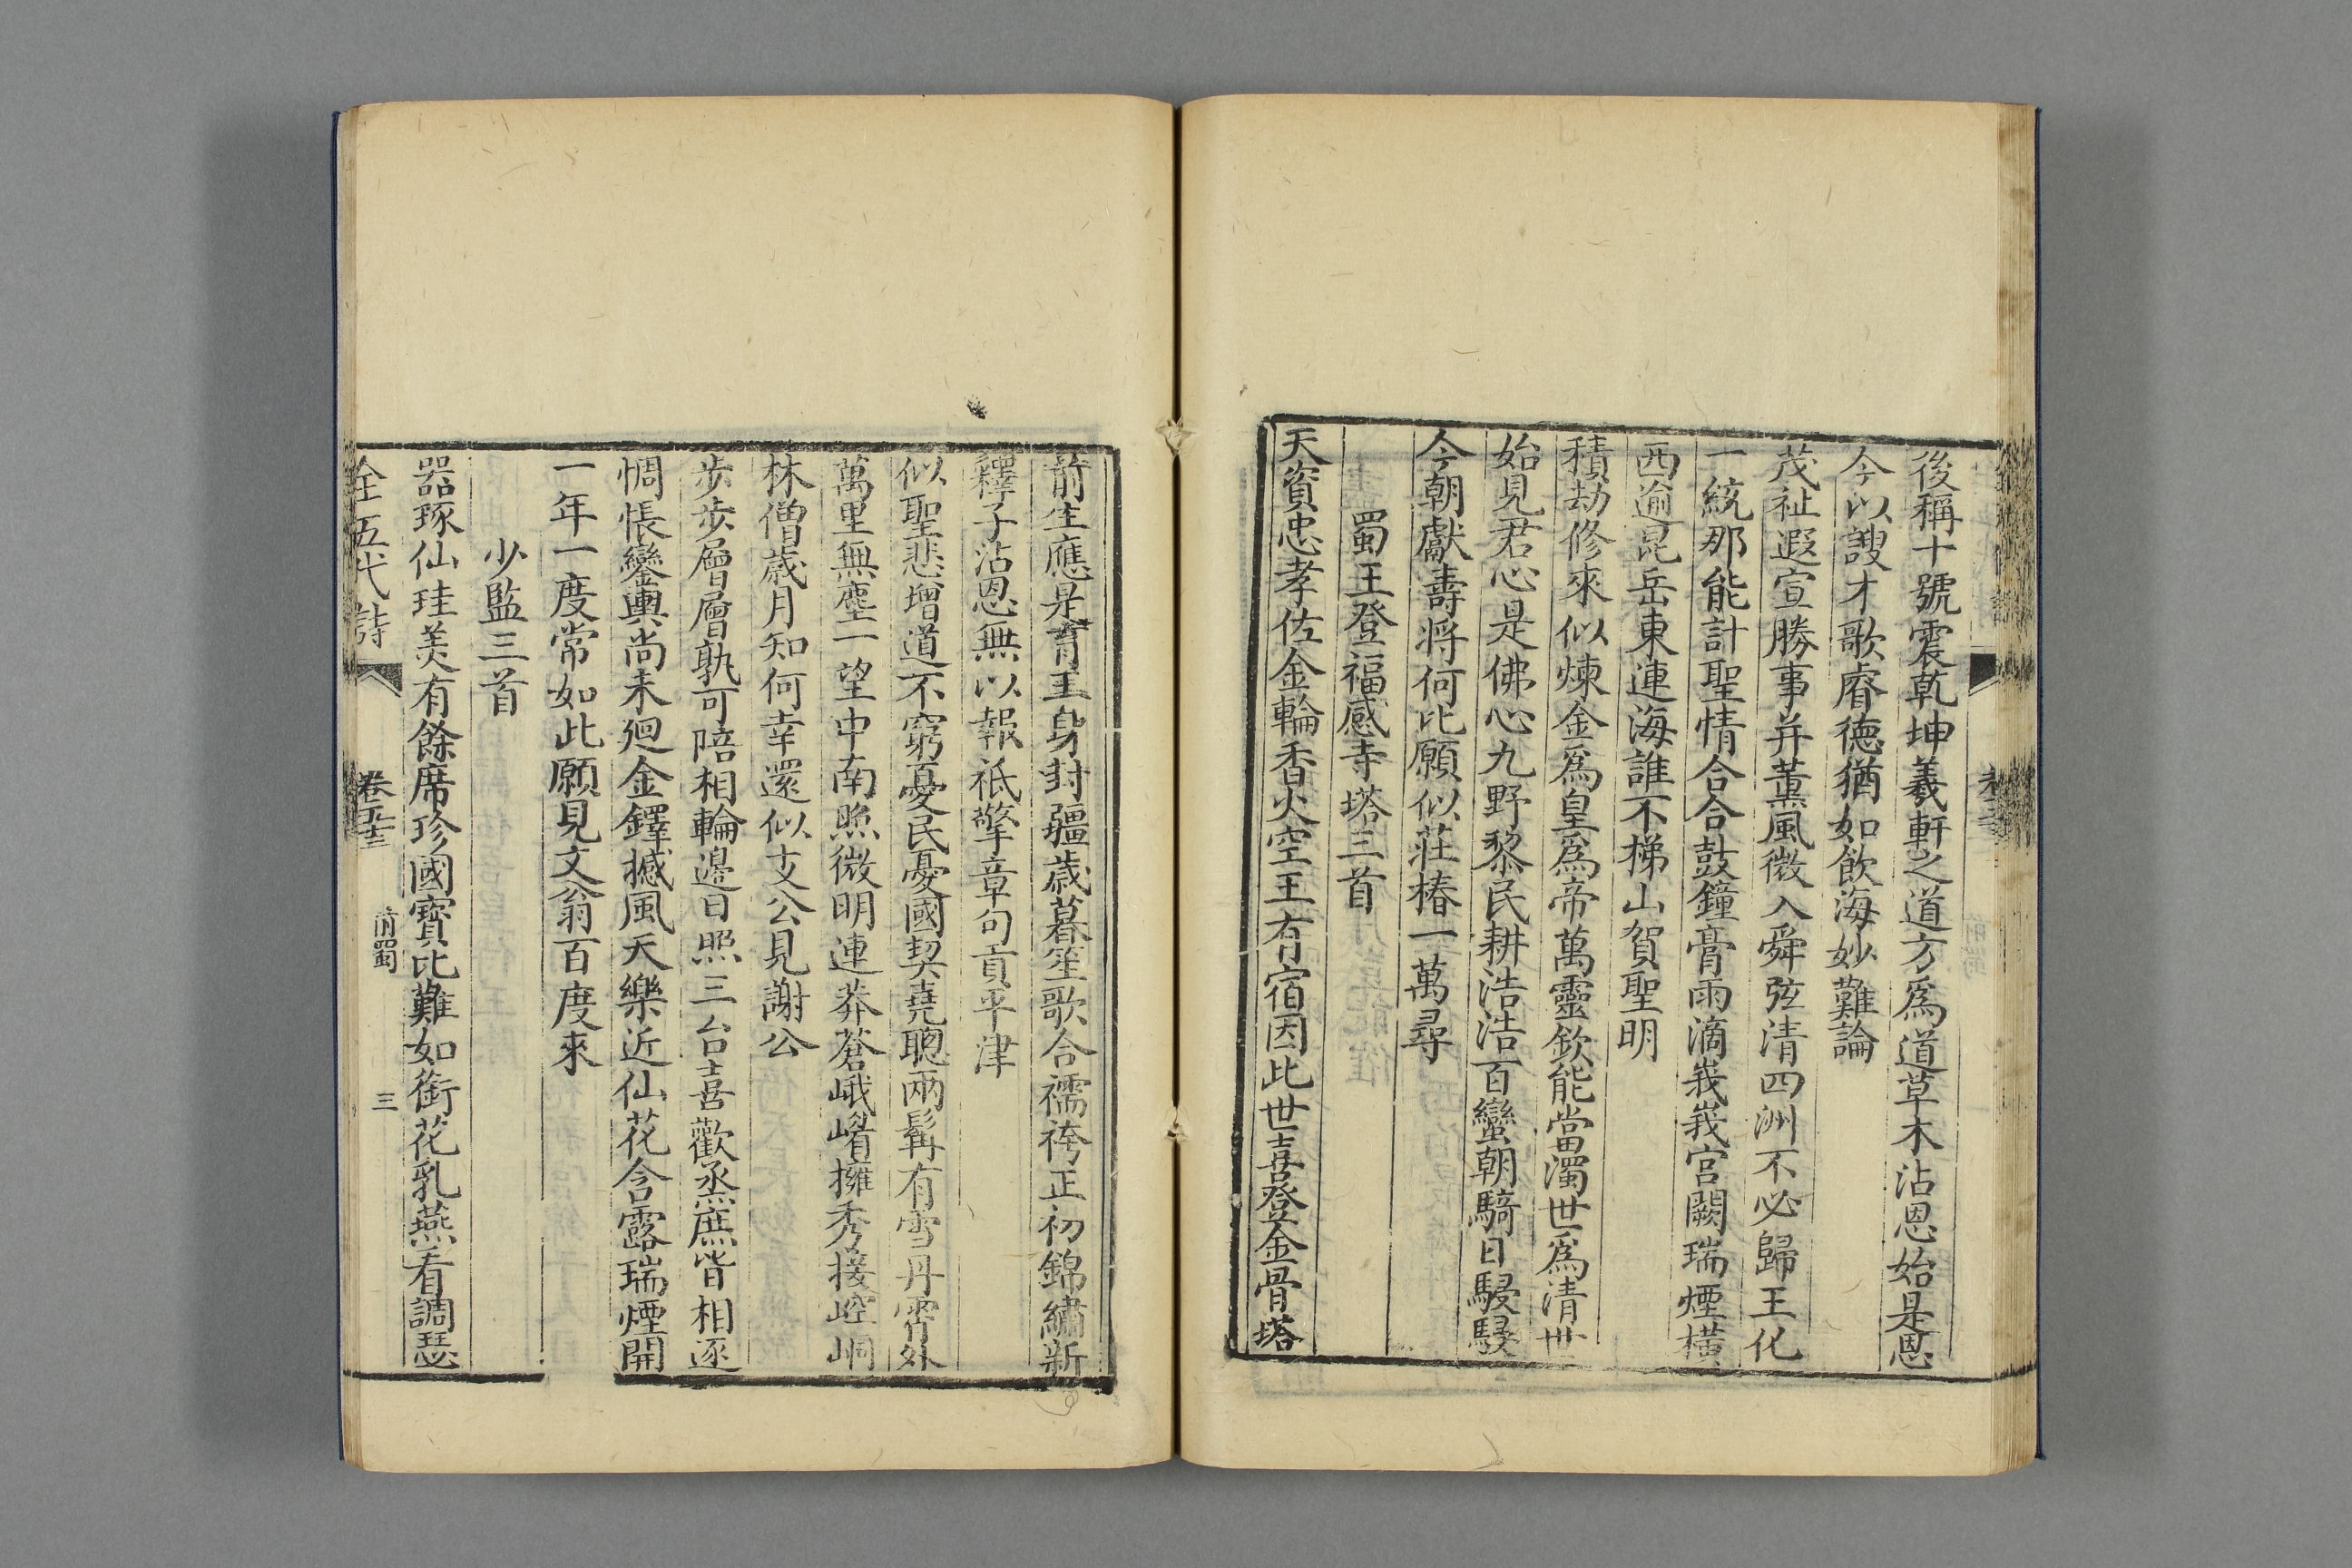 後稱十號震乾坤羲軒之道方爲道草木沾恩始是恩
今以謏才歌睿德猶如飲海妙難論
茂祉遐宣勝事并薰風微入舜弦清四洲不必歸王化
一統那能計聖情合合鼓鐘膏雨滴峩峩宮闕瑞煙橫
西逾昆岳東連海誰不梯山賀聖明
積劫修來似煉金爲皇爲帝萬靈欽能當濁世爲清世
始見君心是佛心九野黎民耕浩浩百蠻朝騎日駸駸
今朝獻壽將何比願似莊椿一萬尋
蜀王登福感寺塔三首
天資忠孝佐金輪香火空王有宿因此世喜登金骨塔
前生應是育王身封疆歲暮笙歌合襦袴正初錦繡新
釋子沾恩無以報祇擎章句貢平津
似聖悲增道不窮憂民憂國契堯聰兩髯有雪丹霄外
萬里無塵一望中南照微明連莽蒼峨嵋擁秀接崆峒
林僧歲月知何幸還似支公見謝公
步步層層孰可陪相輪邊日照三台喜歡烝庶皆相逐
惆悵鑾輿尚未迴金鐸撼風天樂近仙花含露瑞煙開
一年一度常如此願見文翁百度來
少監三首
器琢仙珪美有餘席珍國寶比難如銜花乳燕看調瑟
全五代詩
卷五十三
前蜀
三